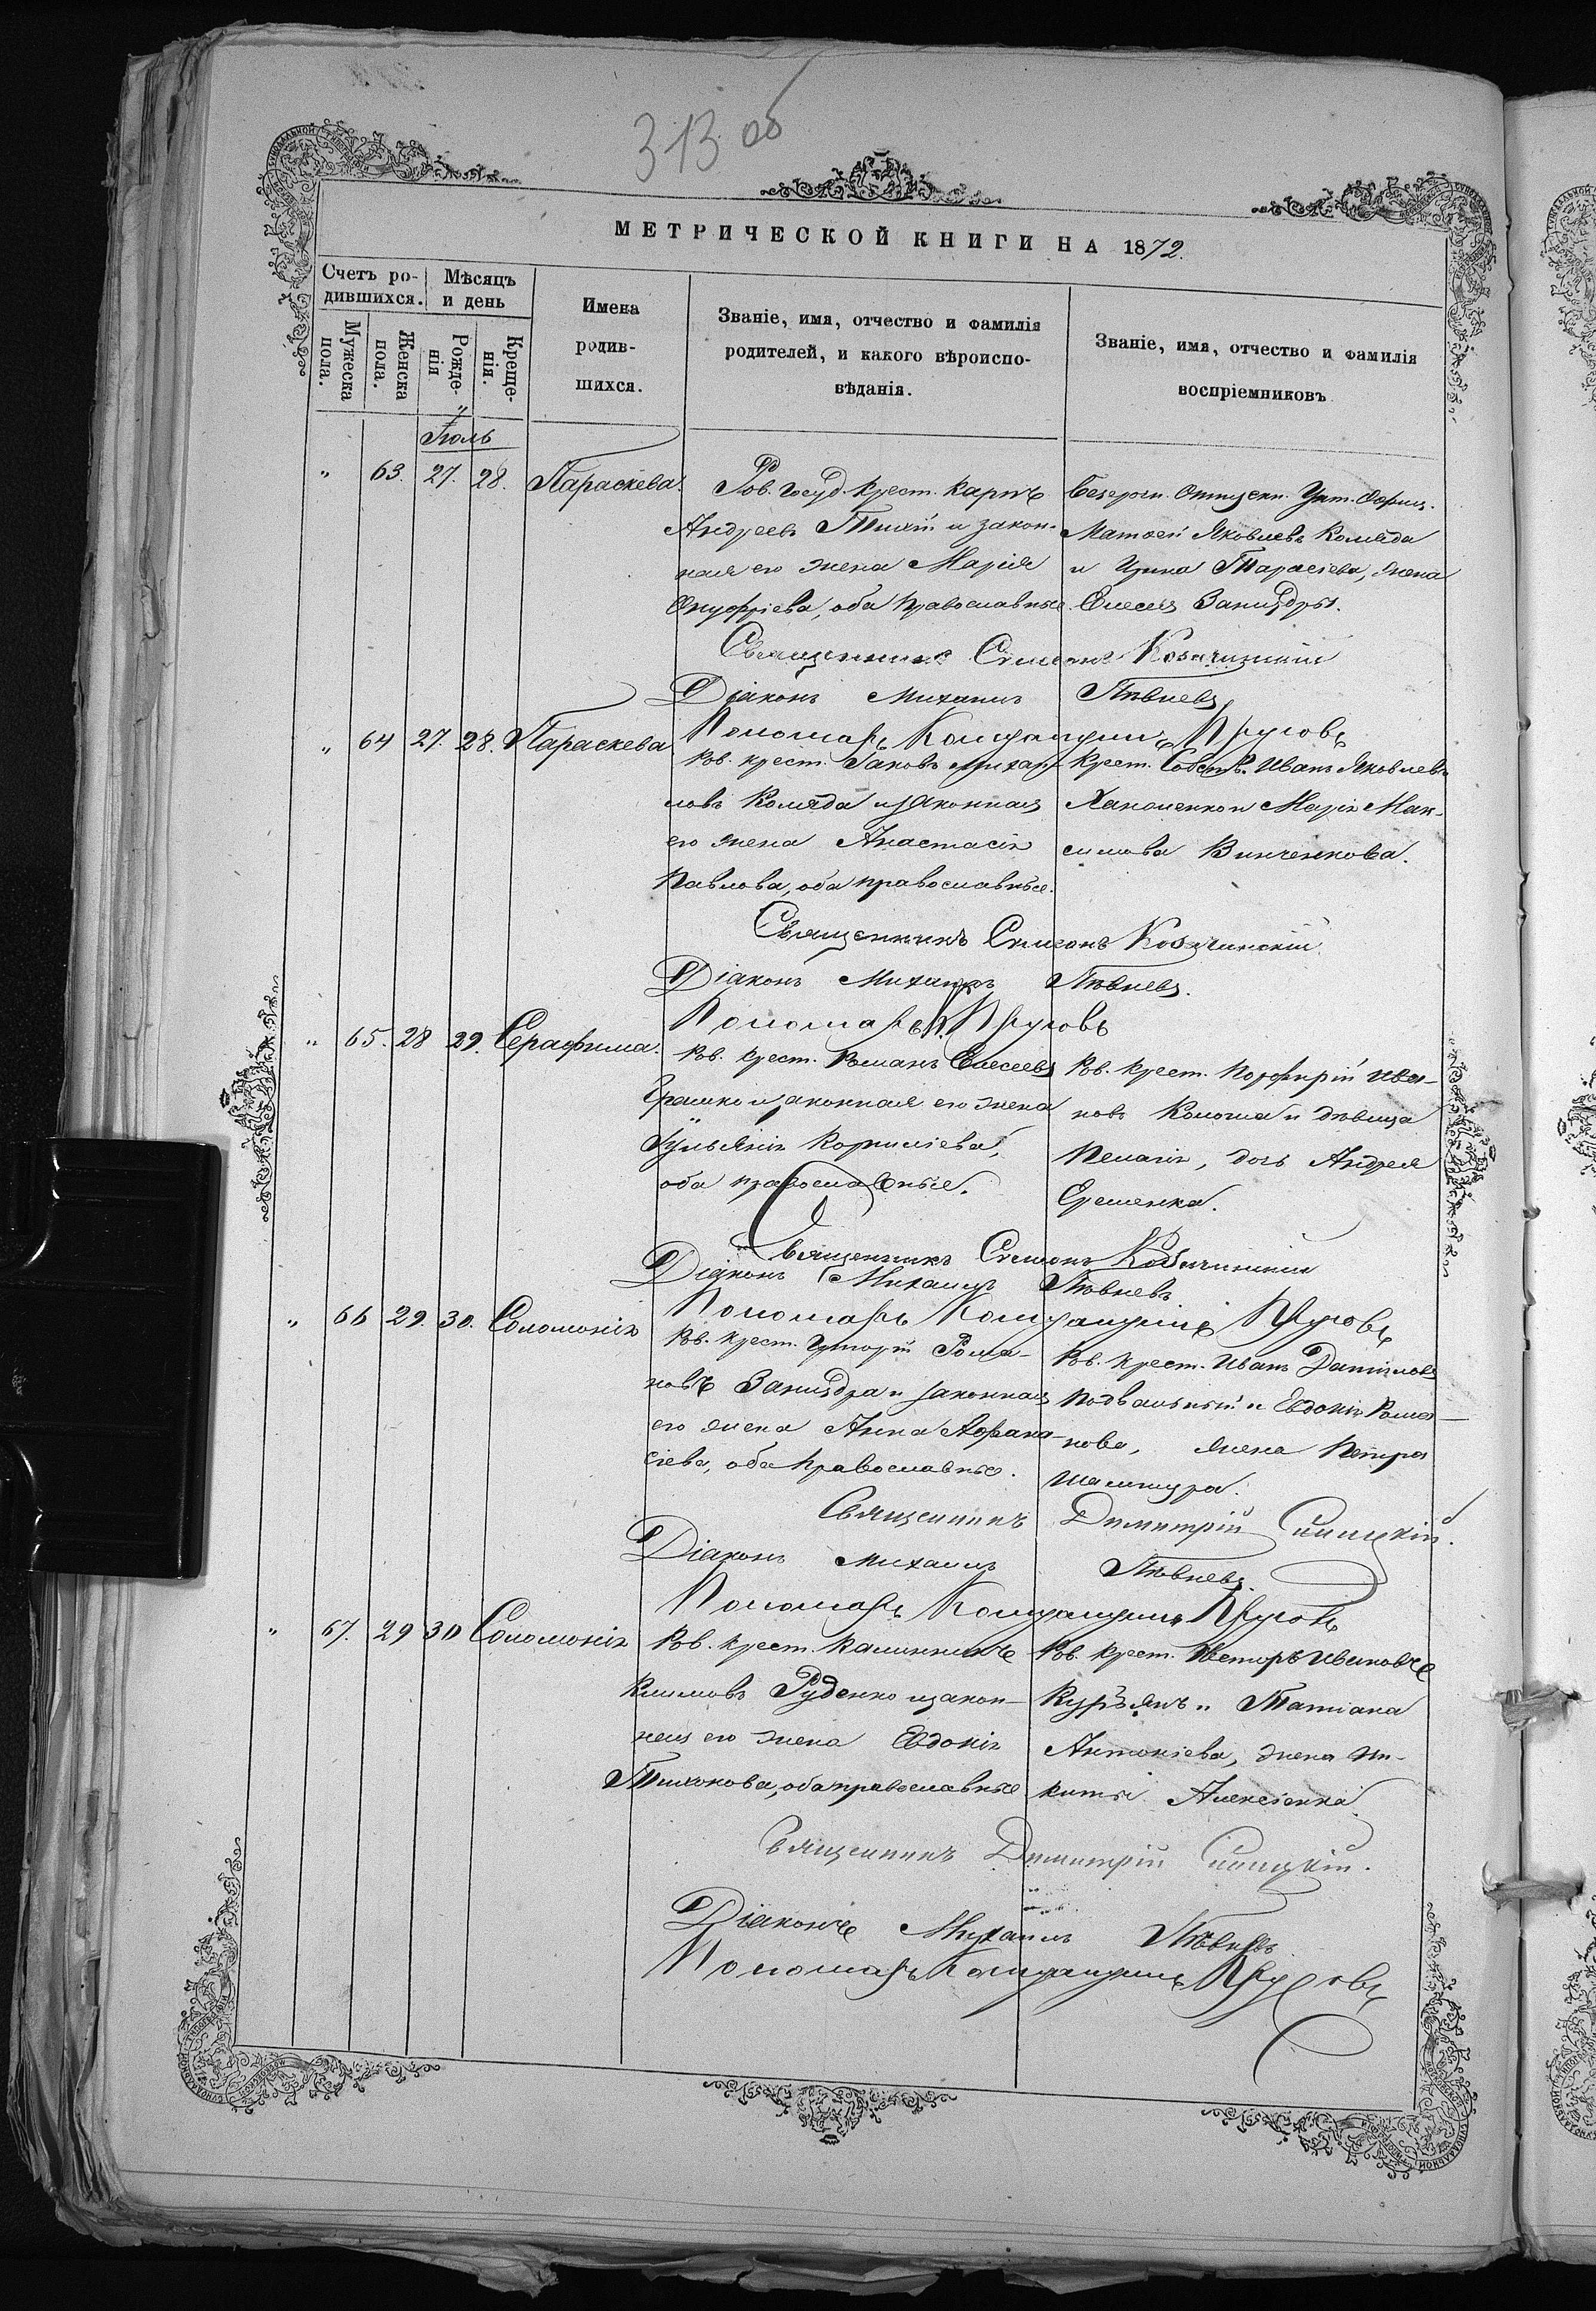 313 об
МЕТРИЧЕСКОЙ КНИГИ НА 1872.
Счетъ ро-
дившихся.
Мѣсяцъ
и день
Мужеска
пола.
Женска
пола.
Рожде-
нія
Креще-
нія.
Имена
родив-
шихся.
Званіе, имя, отчество и фамилія
родителей, и какого вѣроиспо-
вѣданія.
Званіе, имя, отчество и фамилія
воспріемниковъ
Іюль
" 63. 27. 28. Параскева.
Ров. Госуд. крест. Карпъ
Андреевъ Тихій и закон-
ная его жена Марія
Онуфріева, оба православные
Унт. Офиц.
Матѳей Яковлевъ Коляда
и Тарасіева, жена
Елесея Заниздры.
Священникъ Симеонъ Козачинскій
Діаконъ Михаилъ Пѣвневъ
Пономарь Пруговъ
" 64 27. 28. Параскева
Ров. крест. Іаковъ Михаи-
ловъ Коляда и законная
его жена Анастасія
Павлова, оба православные.
Крест. Собств. Иванъ Яковлевъ
Ханоленко и Марія Мак-
симова Винченкова.
Священникъ Симеонъ Козачинскій
Діаконъ Михаилъ Пѣвневъ.
Пономарь Пруговъ
" 65. 28 29. Серафима.
Ров. крест. Романъ Елесеевъ
Ярошко и законная его жена
Іульянія Корниліева,
оба православные.
Ров. крест. Порфирій Ива-
новъ Колоша и дѣвица
Пелагія, дочь Андрея
Еременка.
Священникъ Симеонъ Козачинскій
Діаконъ Михаилъ Пѣвневъ
Пономарь Пруговъ
" 66 29. 30. Соломонія
Ров. крест. Григорій Рома-
новъ Занизdра и законная
его жена Анна Аѳана-
сіева, оба православные.
Ров. крест. Иванъ Даниловъ
Подвальный и Евдокія Рома-
нова, жена Петра
Шамшура.
Священникъ Димитрій Силицкій.
Діаконъ Михаилъ Пѣвневъ.
Пономарь Пруговъ
" 67. 29 30 Соломонія
Ров. крест. Калинникъ
Климовъ Руденко и закон-
ная его жена Евдокія
Тихонова, оба православные
Ров. крест. Несторъ Ивановъ
Курьянъ и Татіана
Антоніева, жена Ни-
киты Алексіенка.
Священникъ Димитрій Силицкій.
Діаконъ Михаилъ Пѣвневъ
Пономарь Пруговъ